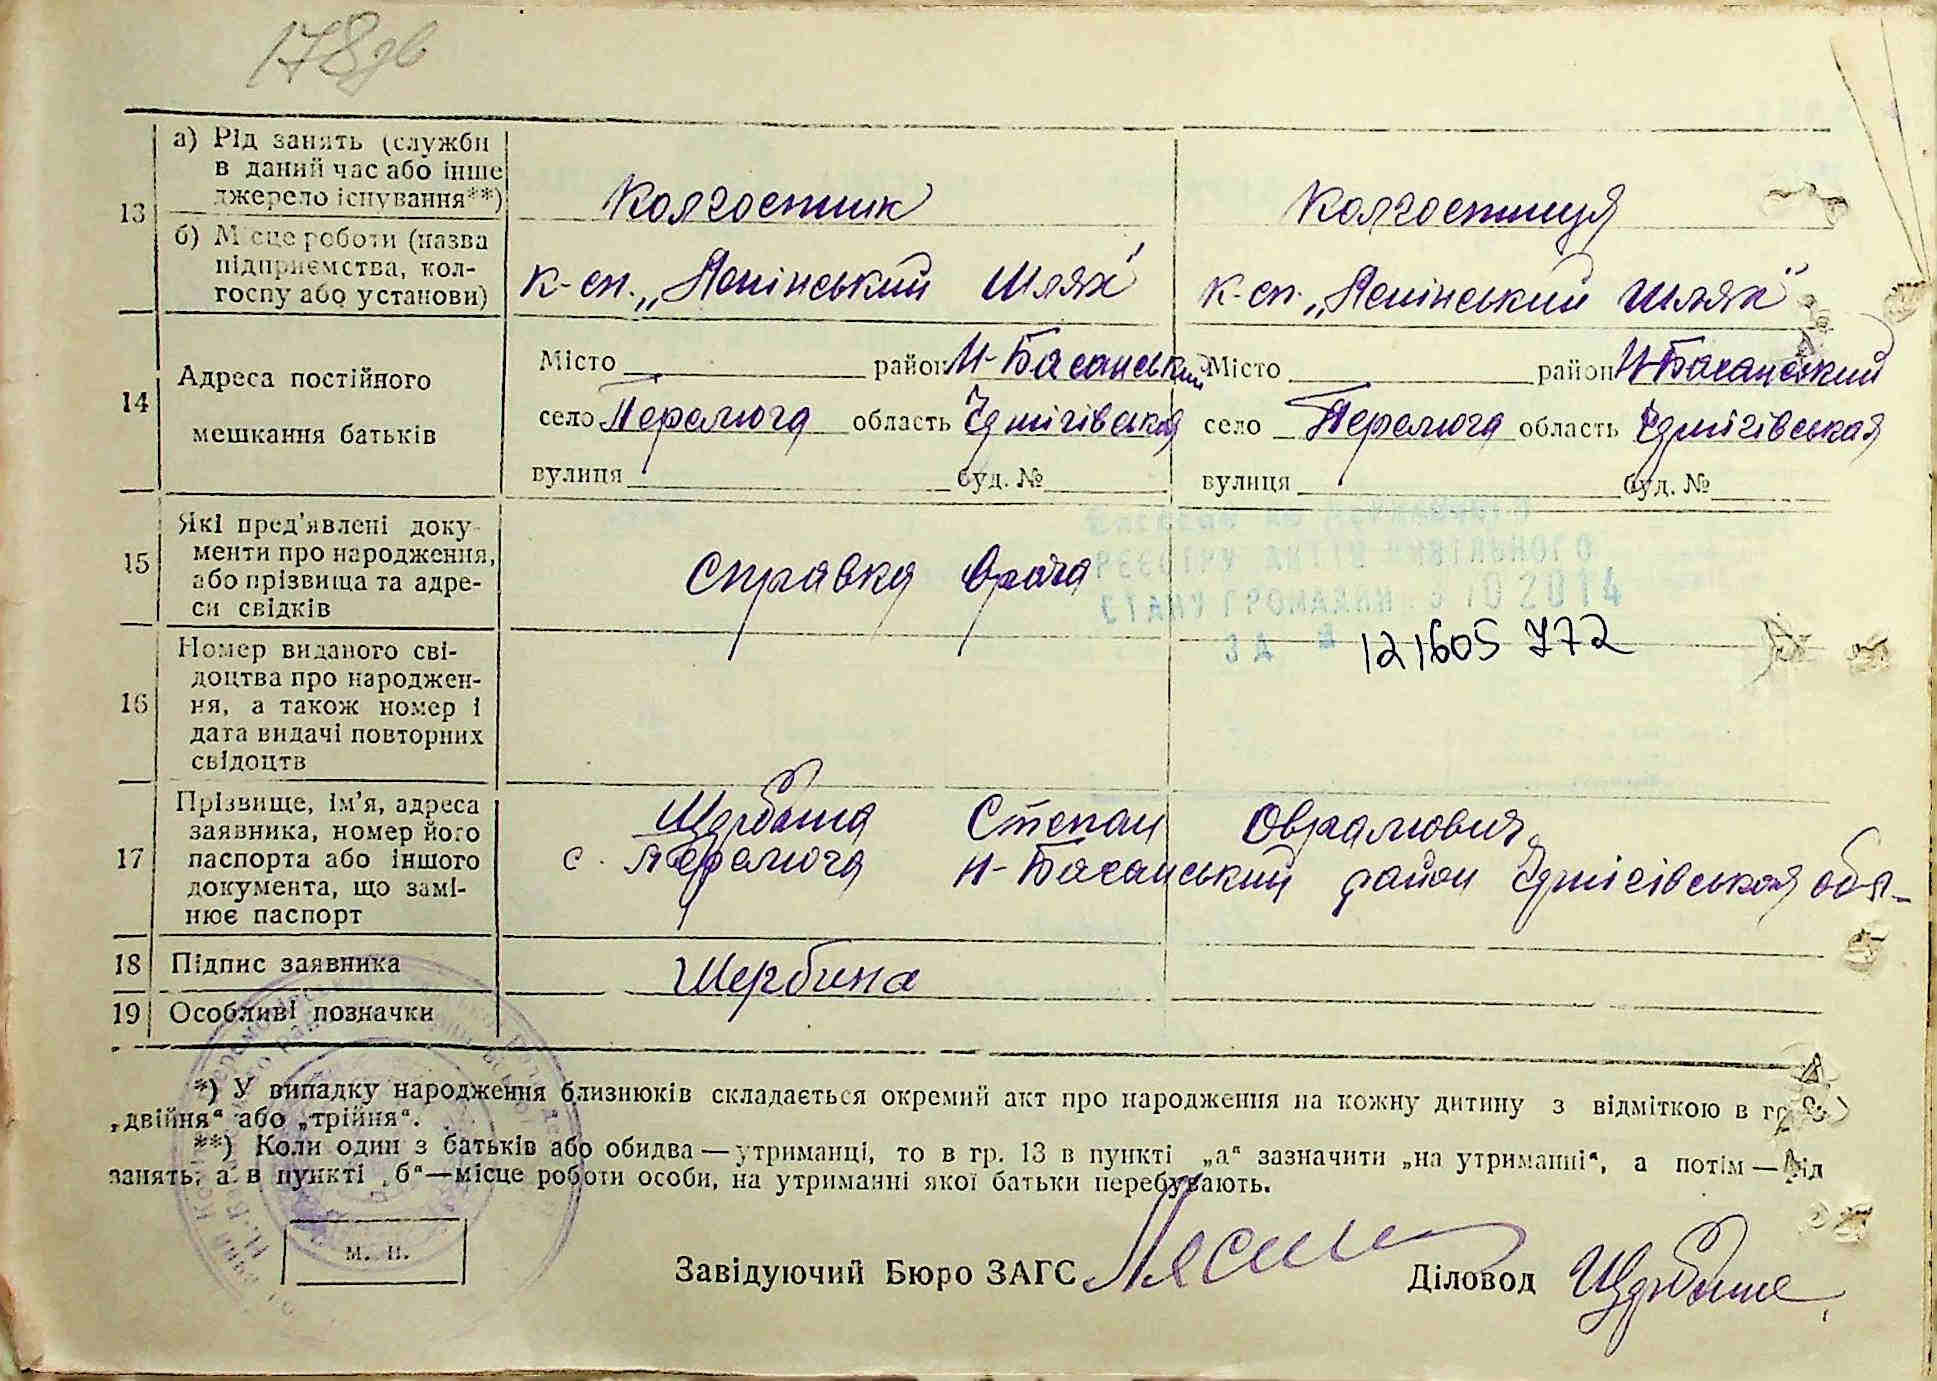 178 зв
13
а) Рід занять (служби в даний час або інше джерело існування**)
Колгоспник
Колгоспниця
б) Місце роботи (назва підприємства, колгоспу або установи)
к-сп. „Ленінський Шлях"
к-сп. „Ленінський Шлях"
14
Адреса постійного
мешкання батьків
Місто район Н-Басанський
село Перемога область Чернігівська
вулиця буд. №
Місто район Н-Басанський
село Перемога область Чернігівська
вулиця буд. №
15
Які пред'явлені доку-
менти про народження,
або прізвища та адре-
си свідків
Справка врача
Внесено до Державного
РЕЄСТРУ АКТІВ ЦИВІЛЬНОГО
СТАНУ ГРОМАДЯН
2014
ЗА №
121605772
16
Номер виданого сві-
доцтва про народжен-
ня, а також номер і
дата видачі повторних
свідоцтв
17
Прізвище, ім'я, адреса
заявника, номер його
паспорта або іншого
документа, що замі-
нює паспорт
Щербина Степан
с. Перемога Н-Басанський район Чернігівська обл-
18
Підпис заявника
Щербина
19
Особливі позначки
*) У випадку народження близнюків складається окремий акт про народження на кожну дитину з відміткою в гр.
„двійня" або „трійня".
**) Коли один з батьків або обидва — утриманці, то в гр. 13 в пункті „а" зазначити „на утриманні", а потім — рід
занять, а в пункті „б"—місце роботи особи, на утриманні якої батьки перебувають.
м. п.
Завідуючий Бюро ЗАГС
Діловод Щербина